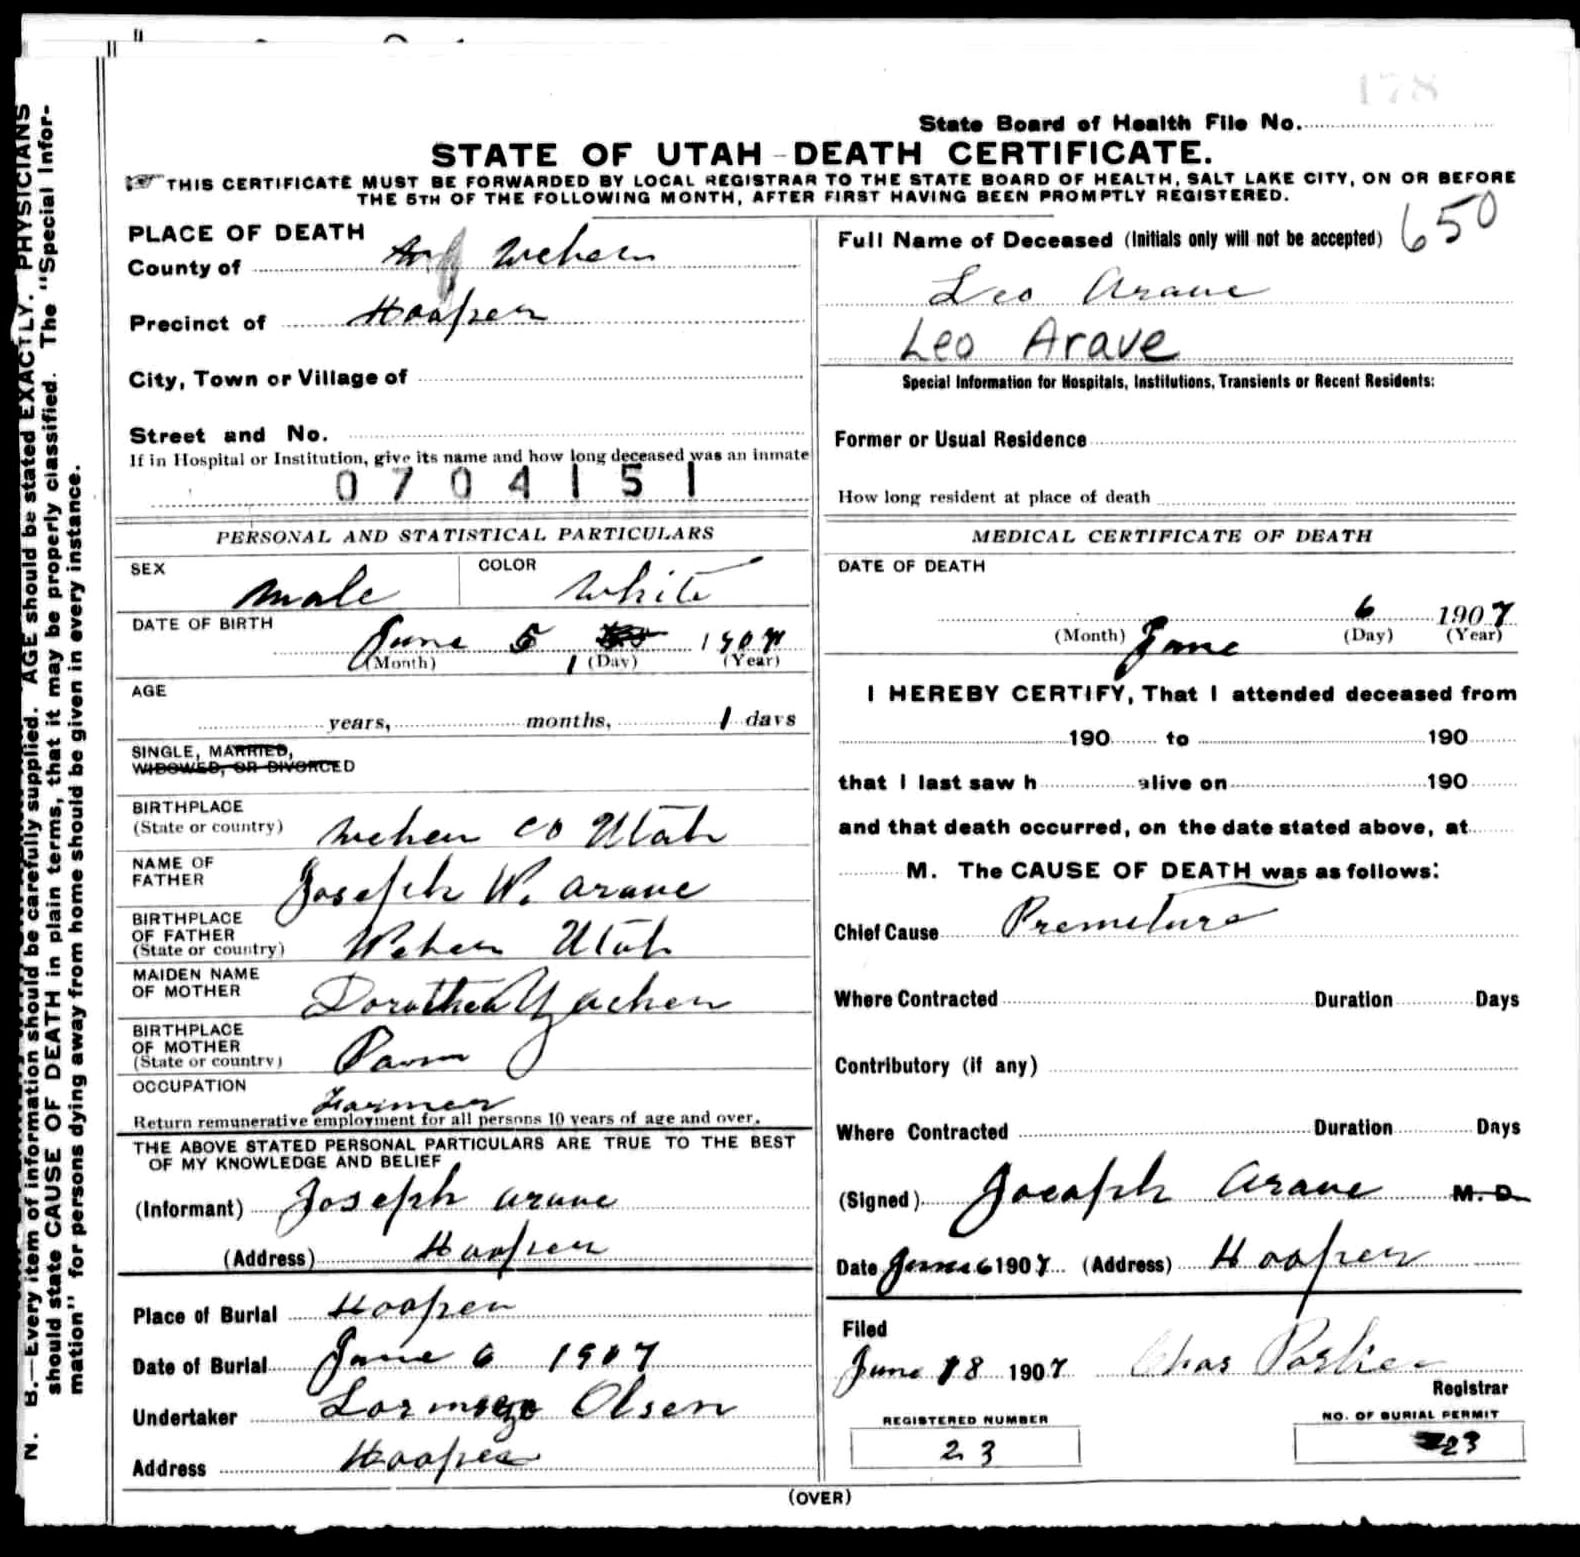 178
State Board of Health File No.
STATE OF UTAH - DEATH CERTIFICATE.
THIS CERTIFICATE MUST BE FORWARDED BY LOCAL REGISTRAR TO THE STATE BOARD OF HEALTH, SALT LAKE CITY, ON OR BEFORE
THE 5TH OF THE FOLLOWING MONTH, AFTER FIRST HAVING BEEN PROMPTLY REGISTERED.
PLACE OF DEATH
County of Weber
Precinct of Hooper
City, Town or Village of
Street and No.
If in Hospital or Institution, give its name and how long deceased was an inmate
0704151
Full Name of Deceased (Initials only will not be accepted) 650
Leo Arave
Leo Arave
Special Information for Hospitals, Institutions, Transients or Recent Residents:
Former or Usual Residence
How long resident at place of death
PERSONAL AND STATISTICAL PARTICULARS
SEX male COLOR White
DATE OF BIRTH
June 5 1907
(Month) 1 (Day) (Year)
AGE
years, months, 1 days
SINGLE, MARRIED,
WIDOWED, OR DIVORCED
BIRTHPLACE
(State or country) Weber Co Utah
NAME OF
FATHER Joseph W. Arave
BIRTHPLACE
OF FATHER
(State or country) Weber Utah
MAIDEN NAME
OF MOTHER Dorothea
BIRTHPLACE
OF MOTHER
(State or country)
OCCUPATION
Farmer
Return remunerative employment for all persons 10 years of age and over.
THE ABOVE STATED PERSONAL PARTICULARS ARE TRUE TO THE BEST
OF MY KNOWLEDGE AND BELIEF
(Informant) Joseph Arave
(Address) Hooper
Place of Burial Hooper
Date of Burial June 6 1907
Undertaker Olsen
Address Hooper
MEDICAL CERTIFICATE OF DEATH
DATE OF DEATH
6 1907
(Month) June (Day) (Year)
I HEREBY CERTIFY, That I attended deceased from
190 to 190
that I last saw h alive on 190
and that death occurred, on the date stated above, at
M. The CAUSE OF DEATH was as follows:
Chief Cause Premeture
Where Contracted Duration Days
Contributory (if any)
Where Contracted Duration Days
(Signed) Joseph Arave M. D.
Date June 6 1907 (Address) Hooper
Filed
June 18 1907 Chas
Registrar
REGISTERED NUMBER
23
NO. OF BURIAL PERMIT
23
(OVER)
N. B.—Every item of information should be carefully supplied. AGE should be stated EXACTLY. PHYSICIANS
should state CAUSE OF DEATH in plain terms, that it may be properly classified. The "Special Infor-
mation" for persons dying away from home should be given in every instance.